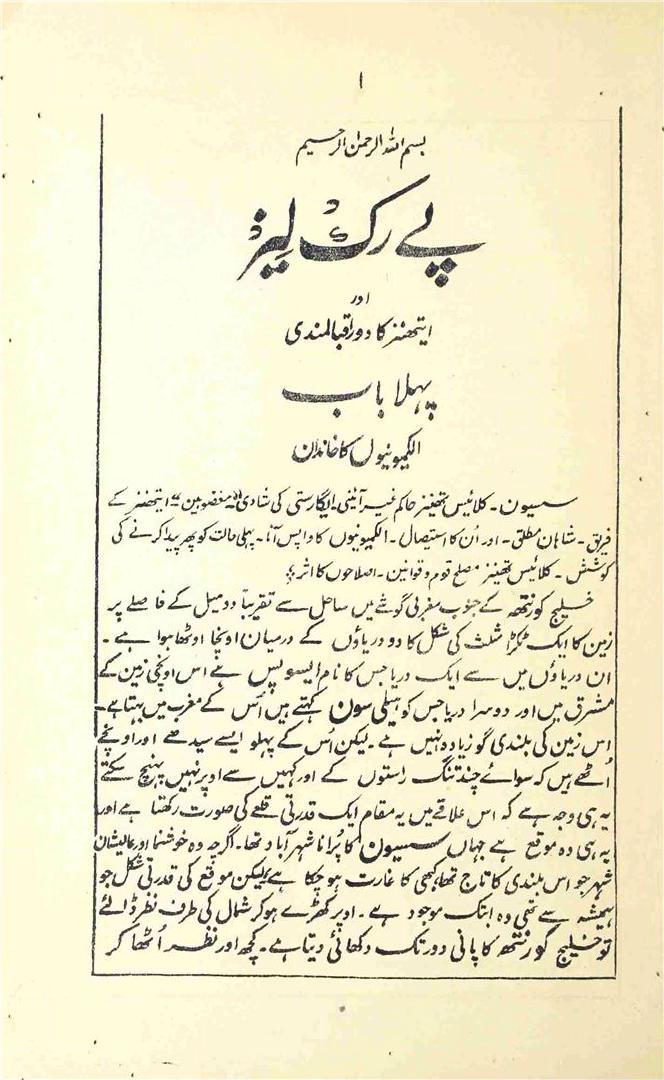 ۱
بسم اللہ الرحمن الرحیم
پے رک لیز
اور
ایتھنز کا دور اقبالمندی
پہلا باب
الکمیونیوں کا خاندان
سسیون ۔ کلائیس تھینز حاکم غیر آئینی ۔ ایگارستی کی شادی ۔ "مغضوبین" ۔ ایتھنز کے
فریق ۔ شاہان مطلق ۔ اور اُن کا استیصال ۔ الکمیونیوں کا واپس آنا ۔ پہلی حالت کو پھر پیدا کرنے کی
کوشش ۔ کلائیس تھینز مصلح قوم و قوانین ۔ اصلاحوں کا اثر ؛
خلیج کورنتھ کے جنوب مغربی گوشے میں ساحل سے تقریباً دو میل کے فاصلے پر
زمین کا ایک ٹکڑا مثلث کی شکل کا دو دریاؤں کے درمیان اونچا اوٹھا ہوا ہے ۔
ان دریاؤں میں سے ایک دریا جس کا نام ایسوپس ہے اس اونچی زمین کے
مشرق میں اور دوسرا دریا جس کو ہیلی سون کہتے ہیں اُس کے مغرب میں بہتا ہے ۔
اس زمین کی بلندی گو زیادہ نہیں ہے ۔ لیکن اُس کے پہلو ایسے سیدھے اور اونچے
اُٹھے ہیں کہ سوائے چند تنگ راستوں کے اور کہیں سے اوپر نہیں پہنچ سکتے
یہ ہی وجہ ہے کہ اس علاقے میں یہ مقام ایک قدرتی قلعے کی صورت رکھتا ہے اور
یہ ہی وہ موقع ہے جہاں سسیون کا پرانا شہر آباد تھا ۔ اگرچہ وہ خوشنما اور عالیشان
شہر جو اس بلندی کا تاج تھا کبھی کا غارت ہو چکا ہے لیکن موقع کی قدرتی شکل جو
ہمیشہ سے تھی وہ ابتک موجود ہے ۔ اوپر کھڑے ہو کر شمال کی طرف نظر ڈالئے
تو خلیج کورنتھ کا پانی دور تک دکھائی دیتا ہے ۔ کچھ اور نظر اُٹھا کر